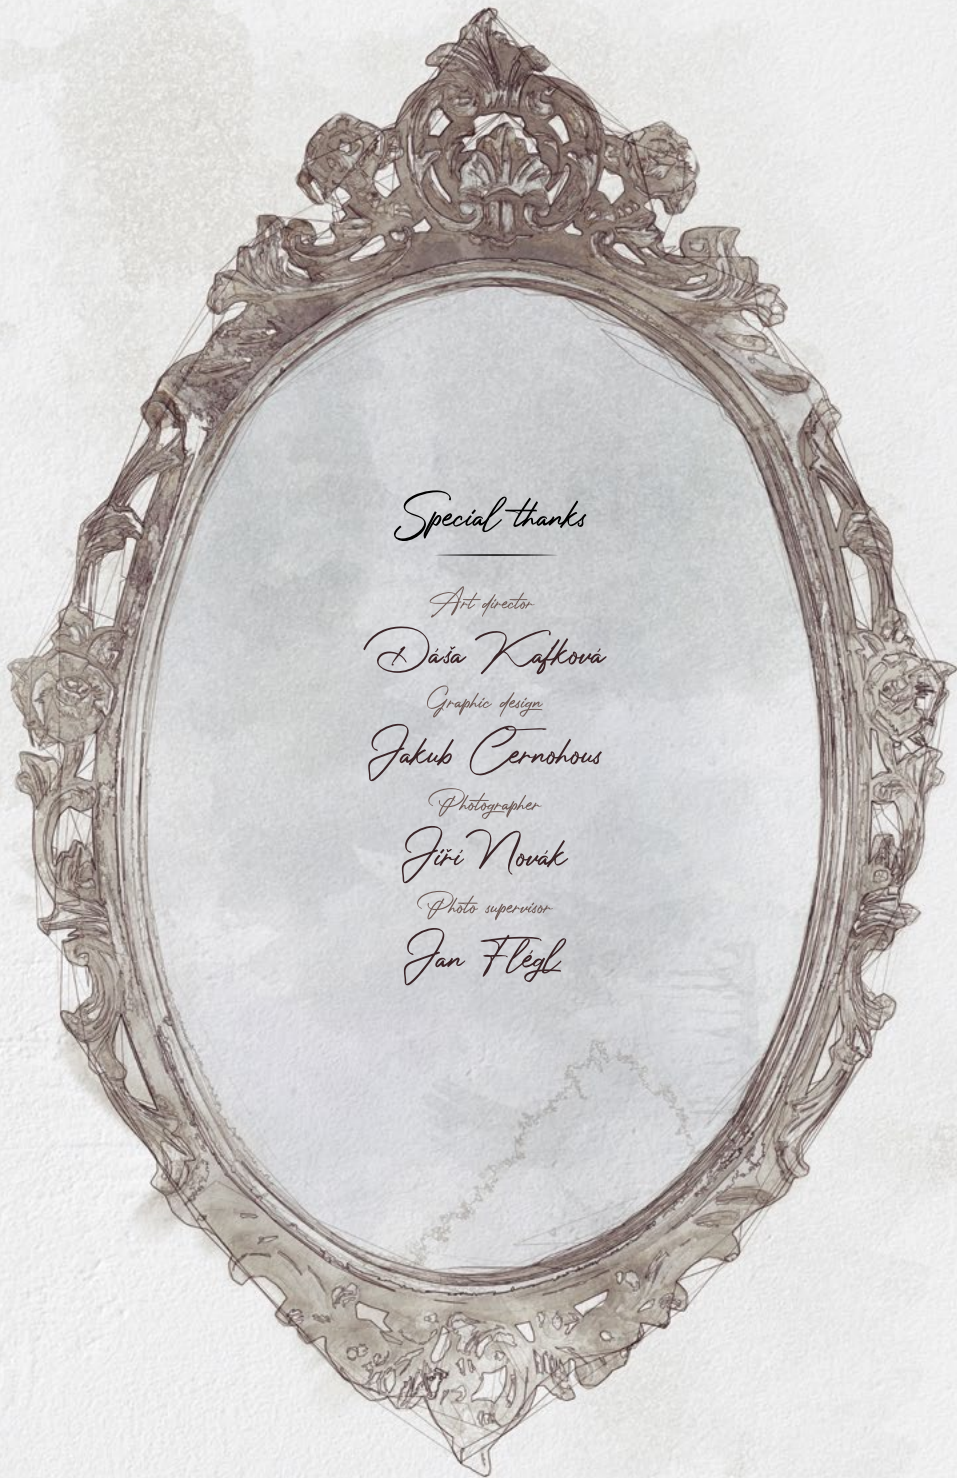 Special thanks
Art director
Dáša Kafková
Graphic design
Jakub Černohous
Photographer
Jiří Novák
Photo supervisor
Jan Flégl